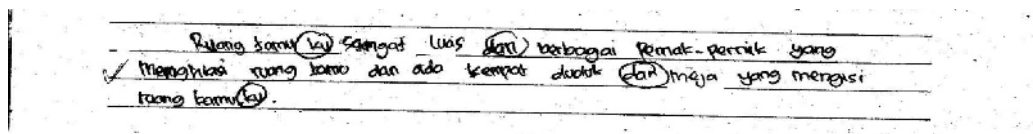 Ruang tamu ku sangat luas dari berbagai pernak-pernik yang
menghiasi ruang tamu dan ada tempat duduk dan meja yang mengisi
ruang tamu ku.